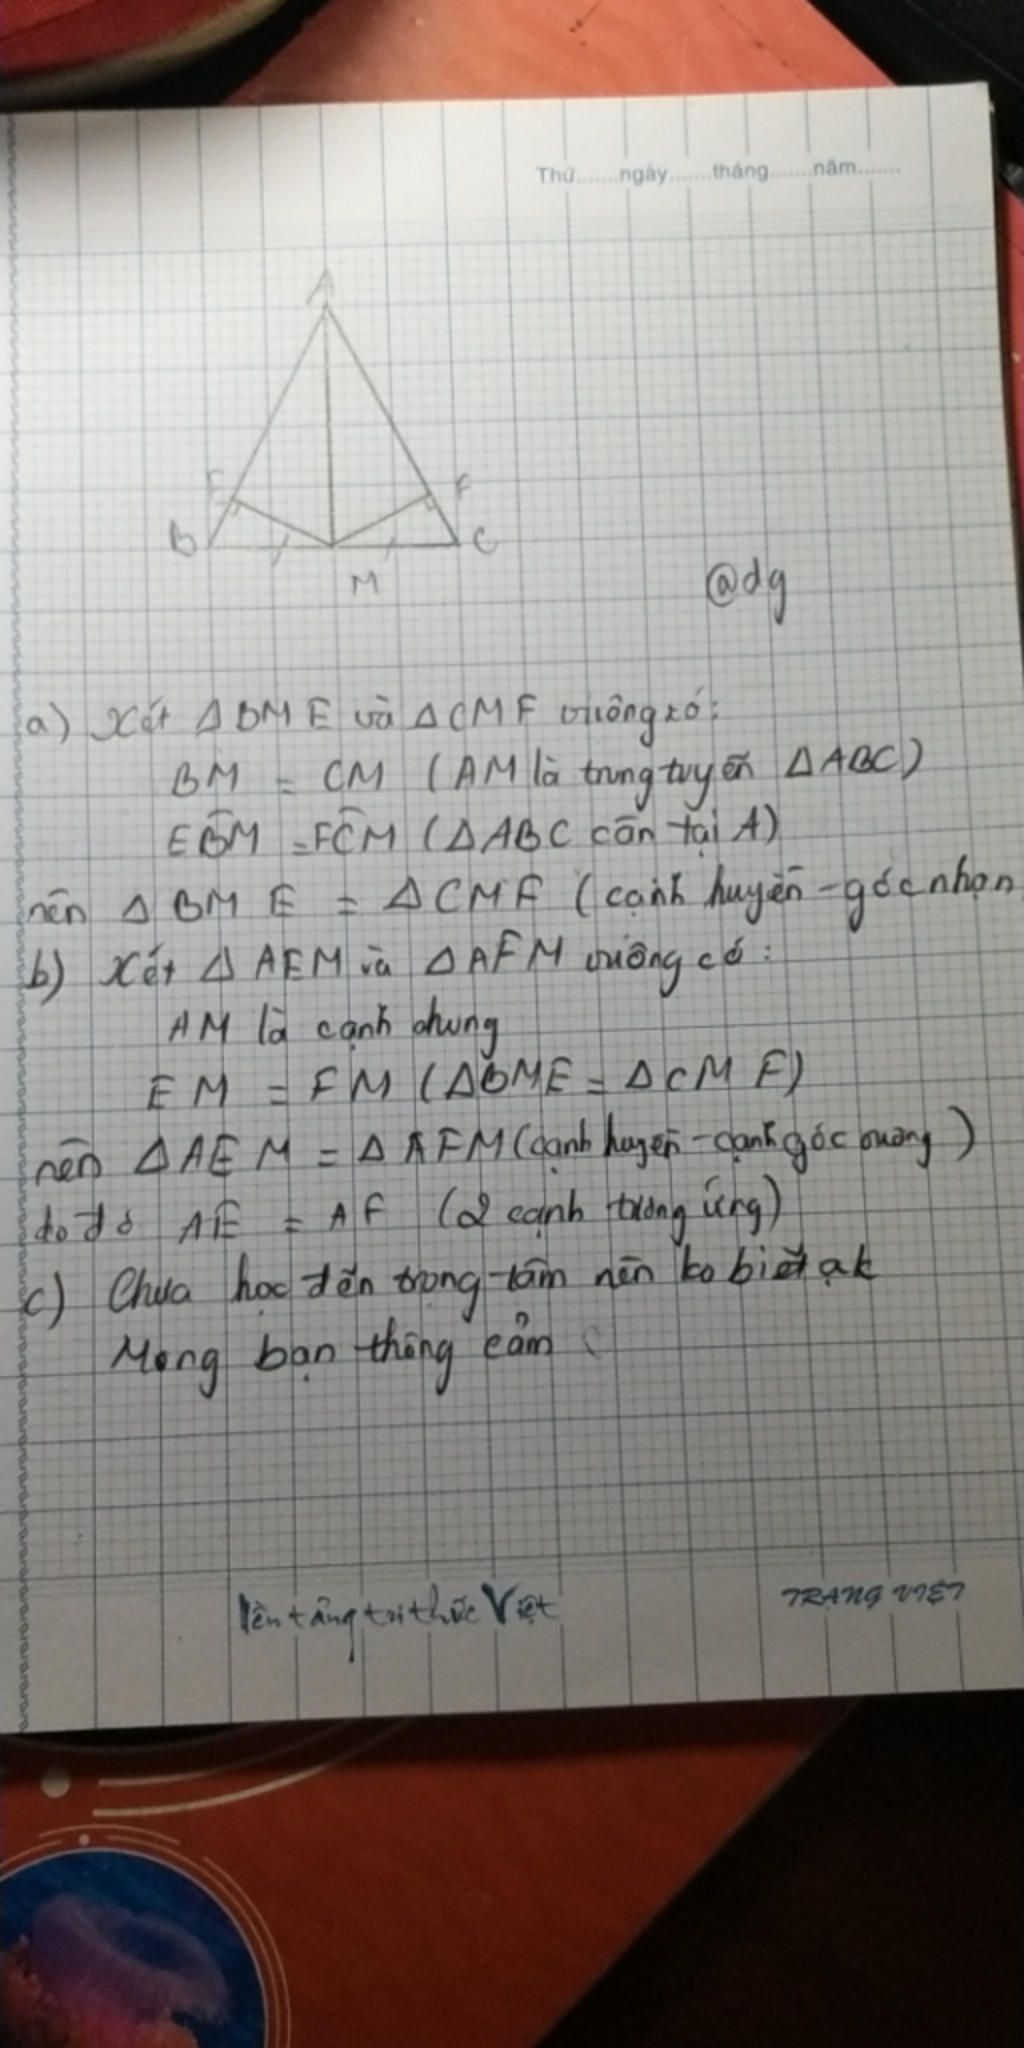 Thứ.......ngày.......tháng.......năm.......
A
E F
B C
M
@dg
a) Xét Δ BME và Δ CMF vuông có:
BM = CM (AM là trung tuyến Δ ABC)
EBM = FCM (Δ ABC cân tại A)
nên Δ BME = Δ CMF (cạnh huyền - góc nhọn
b) Xét Δ AEM và Δ AFM vuông có:
AM là cạnh chung
EM = FM (ΔBME = ΔCMF)
nên ΔAEM = ΔAFM (cạnh huyền - cạnh góc vuông)
do đó AE = AF (2 cạnh tương ứng)
c) Chưa học đến trọng tâm nên ko biết ạk
Mong bạn thông cảm
Nền tảng tri thức Việt
TRANG VIỆT